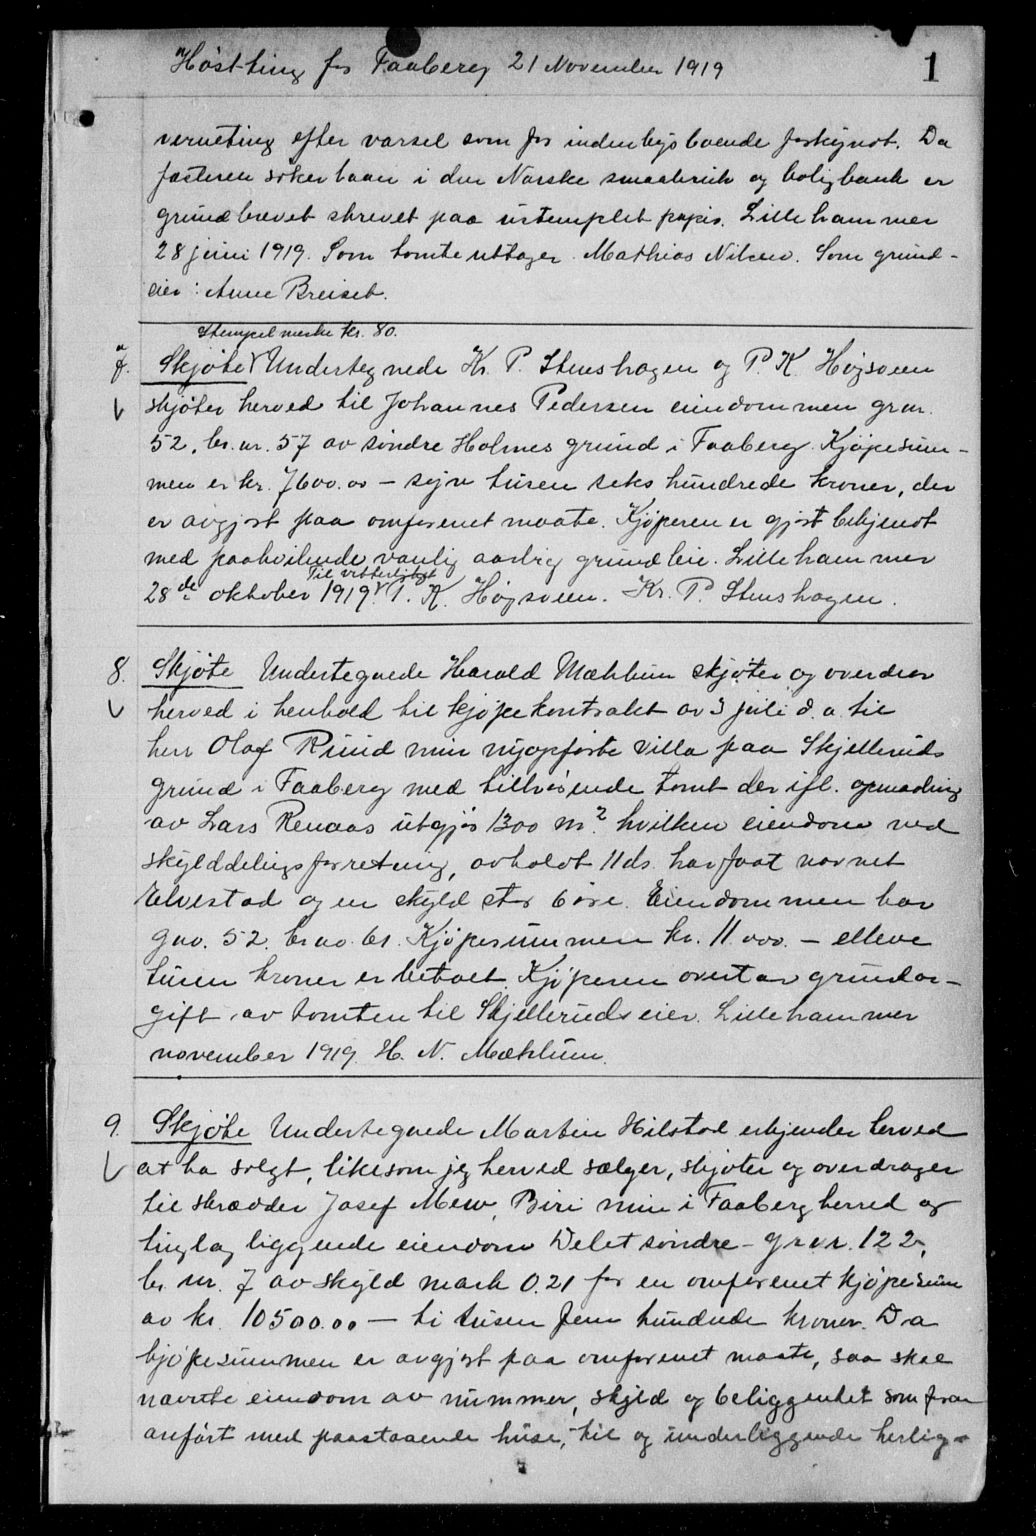 Høstting for Faaberg 21 November 1919
1
verneting efter varsel som for indenbys boende forkyndt. Da
fæsteren søker laan i den Norske smaabruk og boligbank er
grundbrevet skrevet paa ustemplet papir. Lillehammer
28 juni 1919. Som tomteuttager Mathias Nilsen. Som grund-
eier: Anne Breiset.
Stempelmerke kr. 80.
7. Skjøte Undertegnede Kr. P. Stenshagen og P. K. Højsveen
skjøter herved til Johannes Pedersen eiendommen gr.nr.
52, br.nr. 57 av søndre Holmes grund i Faaberg. Kjøpesum-
men er kr. 7600.00 – syv tusen seks hundrede kroner, der
er avgjort paa omforenet maate. Kjøperen er gjort bekjendt
med paahvilende vanlig aarlig grundleie. Lillehammer
Til vitterlighet
28de oktober 1919. P. K. Højsveen. Kr. P. Stenshagen.
8. Skjøte Undertegnede Harald Mæhlum skjøter og overdrar
herved i henhold til kjøpekontrakt av 3 juli d.a. til
herr Olaf Ruud min nyopførte villa paa Skjelleruds
grund i Faaberg med tilhørende tomt der ifl. opmaaling
av Lars Renaas utgjør 1300 m.2 hvilken eiendom ved
skylddelingsforretning, avholdt 11 ds. har faat navnet
Elvestad og en skyld stor 6 øre. Eiendommen har
gno. 52. br.no. 61. Kjøpesummen kr. 11.000. – elleve
tusen kroner er betalt. Kjøperen overtar grundav-
gift av tomten til Skjelleruds eier. Lillehammer
november 1919. H. N. Mæhlum.
9. Skjøte Undertegnede Martin Hilstad erkjender herved
at ha solgt, likesom jeg herved sælger, skjøter og overdrager
til skrædder Josef Mew, Biri min i Faaberg herred og
tinglag liggende eiendom Delet søndre – gr.nr. 122,
br.nr. 7 av skyld mark 0.21 for en omforenet kjøpesum
av kr. 10500.00 – ti tusen fem hundrede kroner. Da
kjøpesummen er avgjort paa omforenet maate, saa skal
nævnte eiendom av nummer, skyld og beliggenhet som foran
anført med paastaaende huse, til og underliggende herlig-